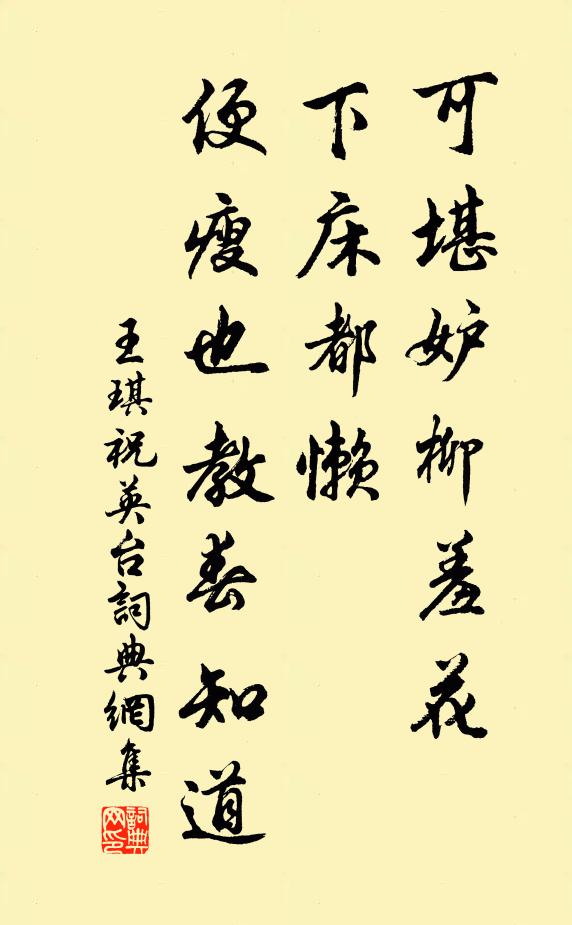 可堪妒柳羞花
下床都懒
便瘦也教春知道
王琪祝英台詞典網集
詞典网印